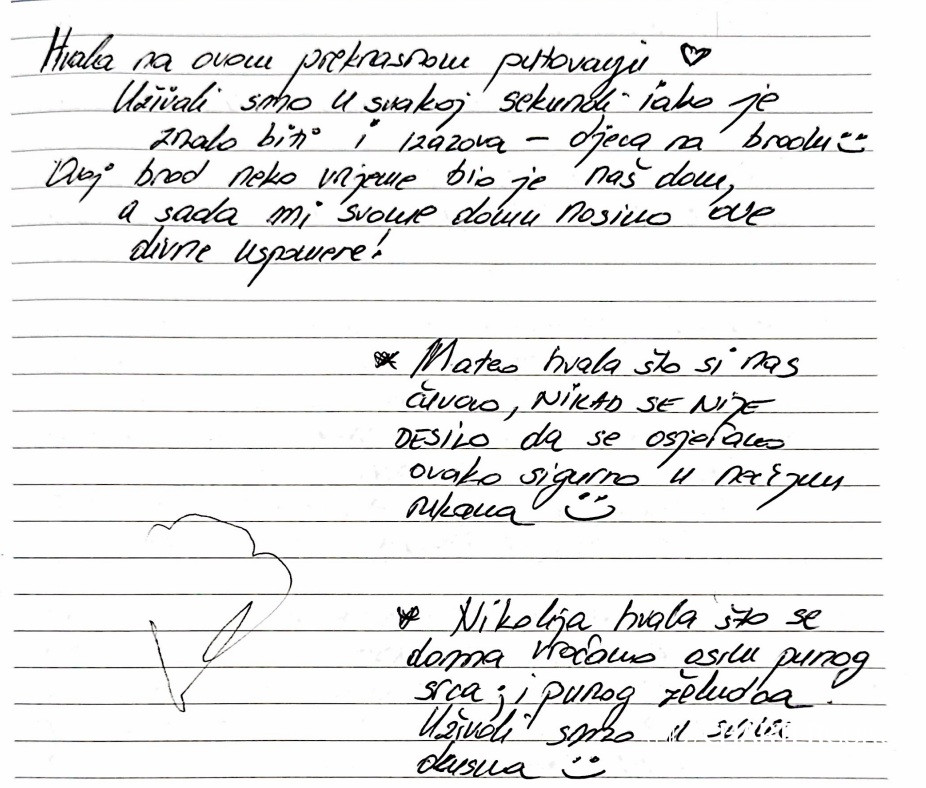 Hvala na ovom prekrasnom putovanju ♡
Uživali smo u svakoj sekundi iako je
znalo biti i izazova – djeca na brodu
Ovaj brod neko vrijeme bio je naš dom,
a sada mi svome domu nosimo ove
divne uspomene!
* Mateo hvala što si nas
čuvao, NIKAD SE NIJE
DESILO da se osjećamo
ovako sigurno u nečijim
rukama
* Nikolija hvala što se
doma vraćamo osim punog
srca i punog želudca.
Uživali smo u
okusima